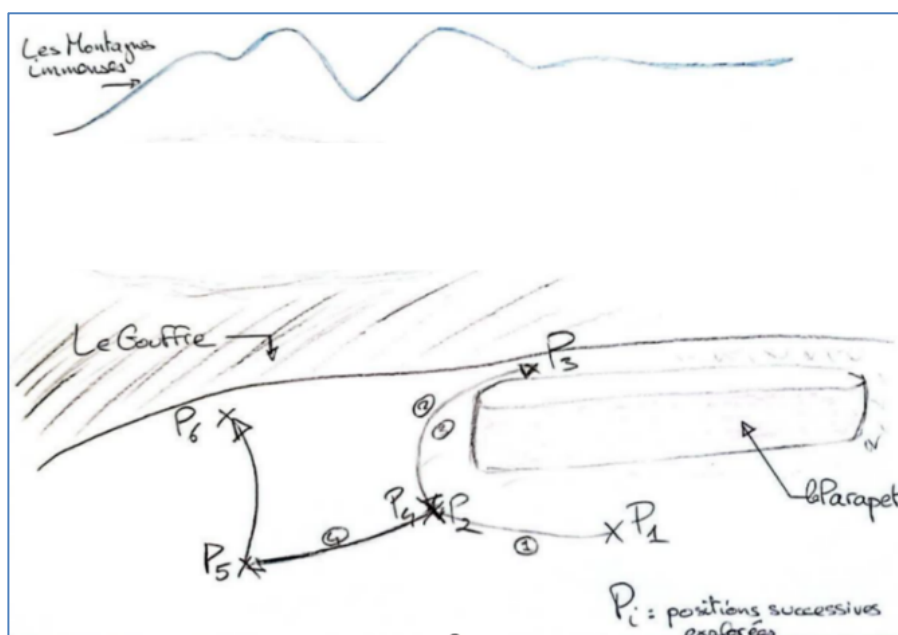 Les Montagnes
immenses
Le Gouffre
P3
P6
P4
P2
P1
P5
④
①
le Parapet
Pi : positions successives
explorées